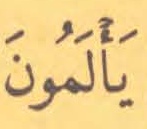 يَأْلَمُونَ